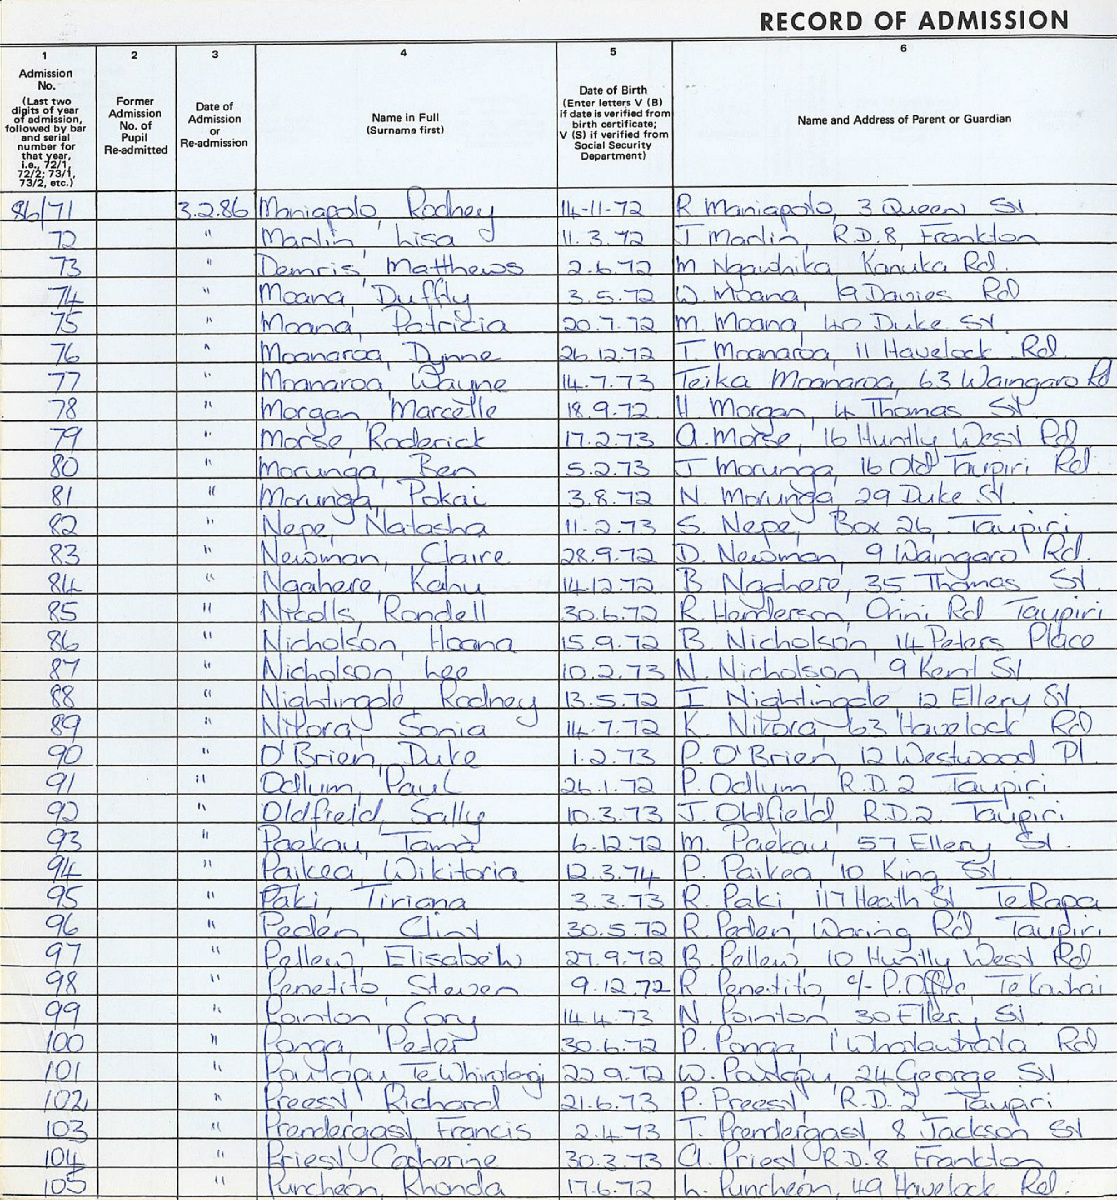 RECORD OF ADMISSION
1 2 3 4 5 6
Admission No. (Last two digits of year of admission, followed by bar and serial number for that year, i.e., 72/1, 72/2; 73/1, 73/2, etc.)
Former Admission No. of Pupil Re-admitted
Date of Admission or Re-admission
Name in Full (Surname first)
Date of Birth (Enter letters V (B) if date is verified from birth certificate; V (S) if verified from Social Security Department)
Name and Address of Parent or Guardian
86/71 3.2.86 Maniapoto, Rodney 14-11-72 R Maniapoto, 3 Queen St.
72 " Martin, Lisa 11.3.72 J Martin, R.D.8, Frankton
73 " Demris, Matthews 2.6.72 M Kanuka Rd.
74 " Moana, Duffty 3.5.72 W. Moana, 19 Davies Rd
75 " Moana, Patricia 20.7.72 M. Moana, 40 Duke St.
76 " Moanaroa, Dynne 26.12.72 T. Moanaroa, 11 Havelock Rd.
77 " Moanaroa, Wayne 14.7.73 Teika Moanaroa, 63 Waingaro Rd
78 " Morgan, Marcelle 18.9.72 H. Morgan, 4 Thomas St.
79 " Morse, Roderick 17.2.73 A. Morse, 16 Huntly West Rd
80 " Morunga, Ben 5.2.73 J Morunga, 16 Old Taupiri Rd.
81 " Morunga, Pokai 3.8.72 N. Morunga, 29 Duke St.
82 " Nepe, Natasha 11.2.73 S. Nepe, Box 26, Taupiri
83 " Newman, Claire 28.9.72 D. Newman, 9 Waingaro Rd.
84 " Ngahere, Kahu 14.12.72 B Ngahere, 35 Thomas St
85 " Nicolls, Randell 30.6.72 R. Henderson, Orini Rd Taupiri
86 " Nicholson, Hoana 15.9.72 B. Nicholson, 14 Peters Place
87 " Nicholson, Lee 10.2.73 N. Nicholson, 9 Kent St.
88 " Nightingale, Rodney 13.5.72 I Nightingale 12 Ellery St.
89 " Nitora, Sonia 14.7.72 K. Nitora, 63 Havelock Rd
90 " O'Brien, Duke 1.2.73 P. O'Brien, 12 Westwood Pl.
91 " Odlum, Paul 26.1.72 P. Odlum, R.D.2 Taupiri
92 " Oldfield, Sally 10.3.73 J. Oldfield, R.D.2. Taupiri
93 " Paekau, Tama 6.12.72 M. Paekau, 57 Ellery St.
94 " Paikea, Wikitoria 12.3.74 P. Paikea, 10 King St.
95 " Paki, Tiriana 3.3.73 R. Paki, 117 Heath St Te Rapa
96 " Peden, Clint 30.5.72 R. Peden, Waring Rd, Taupiri
97 " Pellew, Elisabeth 27.9.72 B. Pellew, 10 Huntly West Rd
98 " Penetito, Steven 9.12.72 R. Penetito, c/- P.Office, Te Kauhai
99 " Pointon, Cory 14.4.73 N. Pointon, 30 Ellery St
100 " Ponga, Peter 30.6.72 P. Ponga, 1 Whatawhata Rd
101 " Te 22.9.72 W. 24 George St.
102 " Preest, Richard 21.6.73 P. Preest, R.D.2, Taupiri
103 " Prendergast, Francis 2.4.73 T. Prendergast, 8 Jackson St
104 " Priest, Catherine 30.3.73 A. Priest, R.D.8 Frankton
105 " Puncheon, Rhonda 17.6.72 L. Puncheon, 49 Havelock Rd.